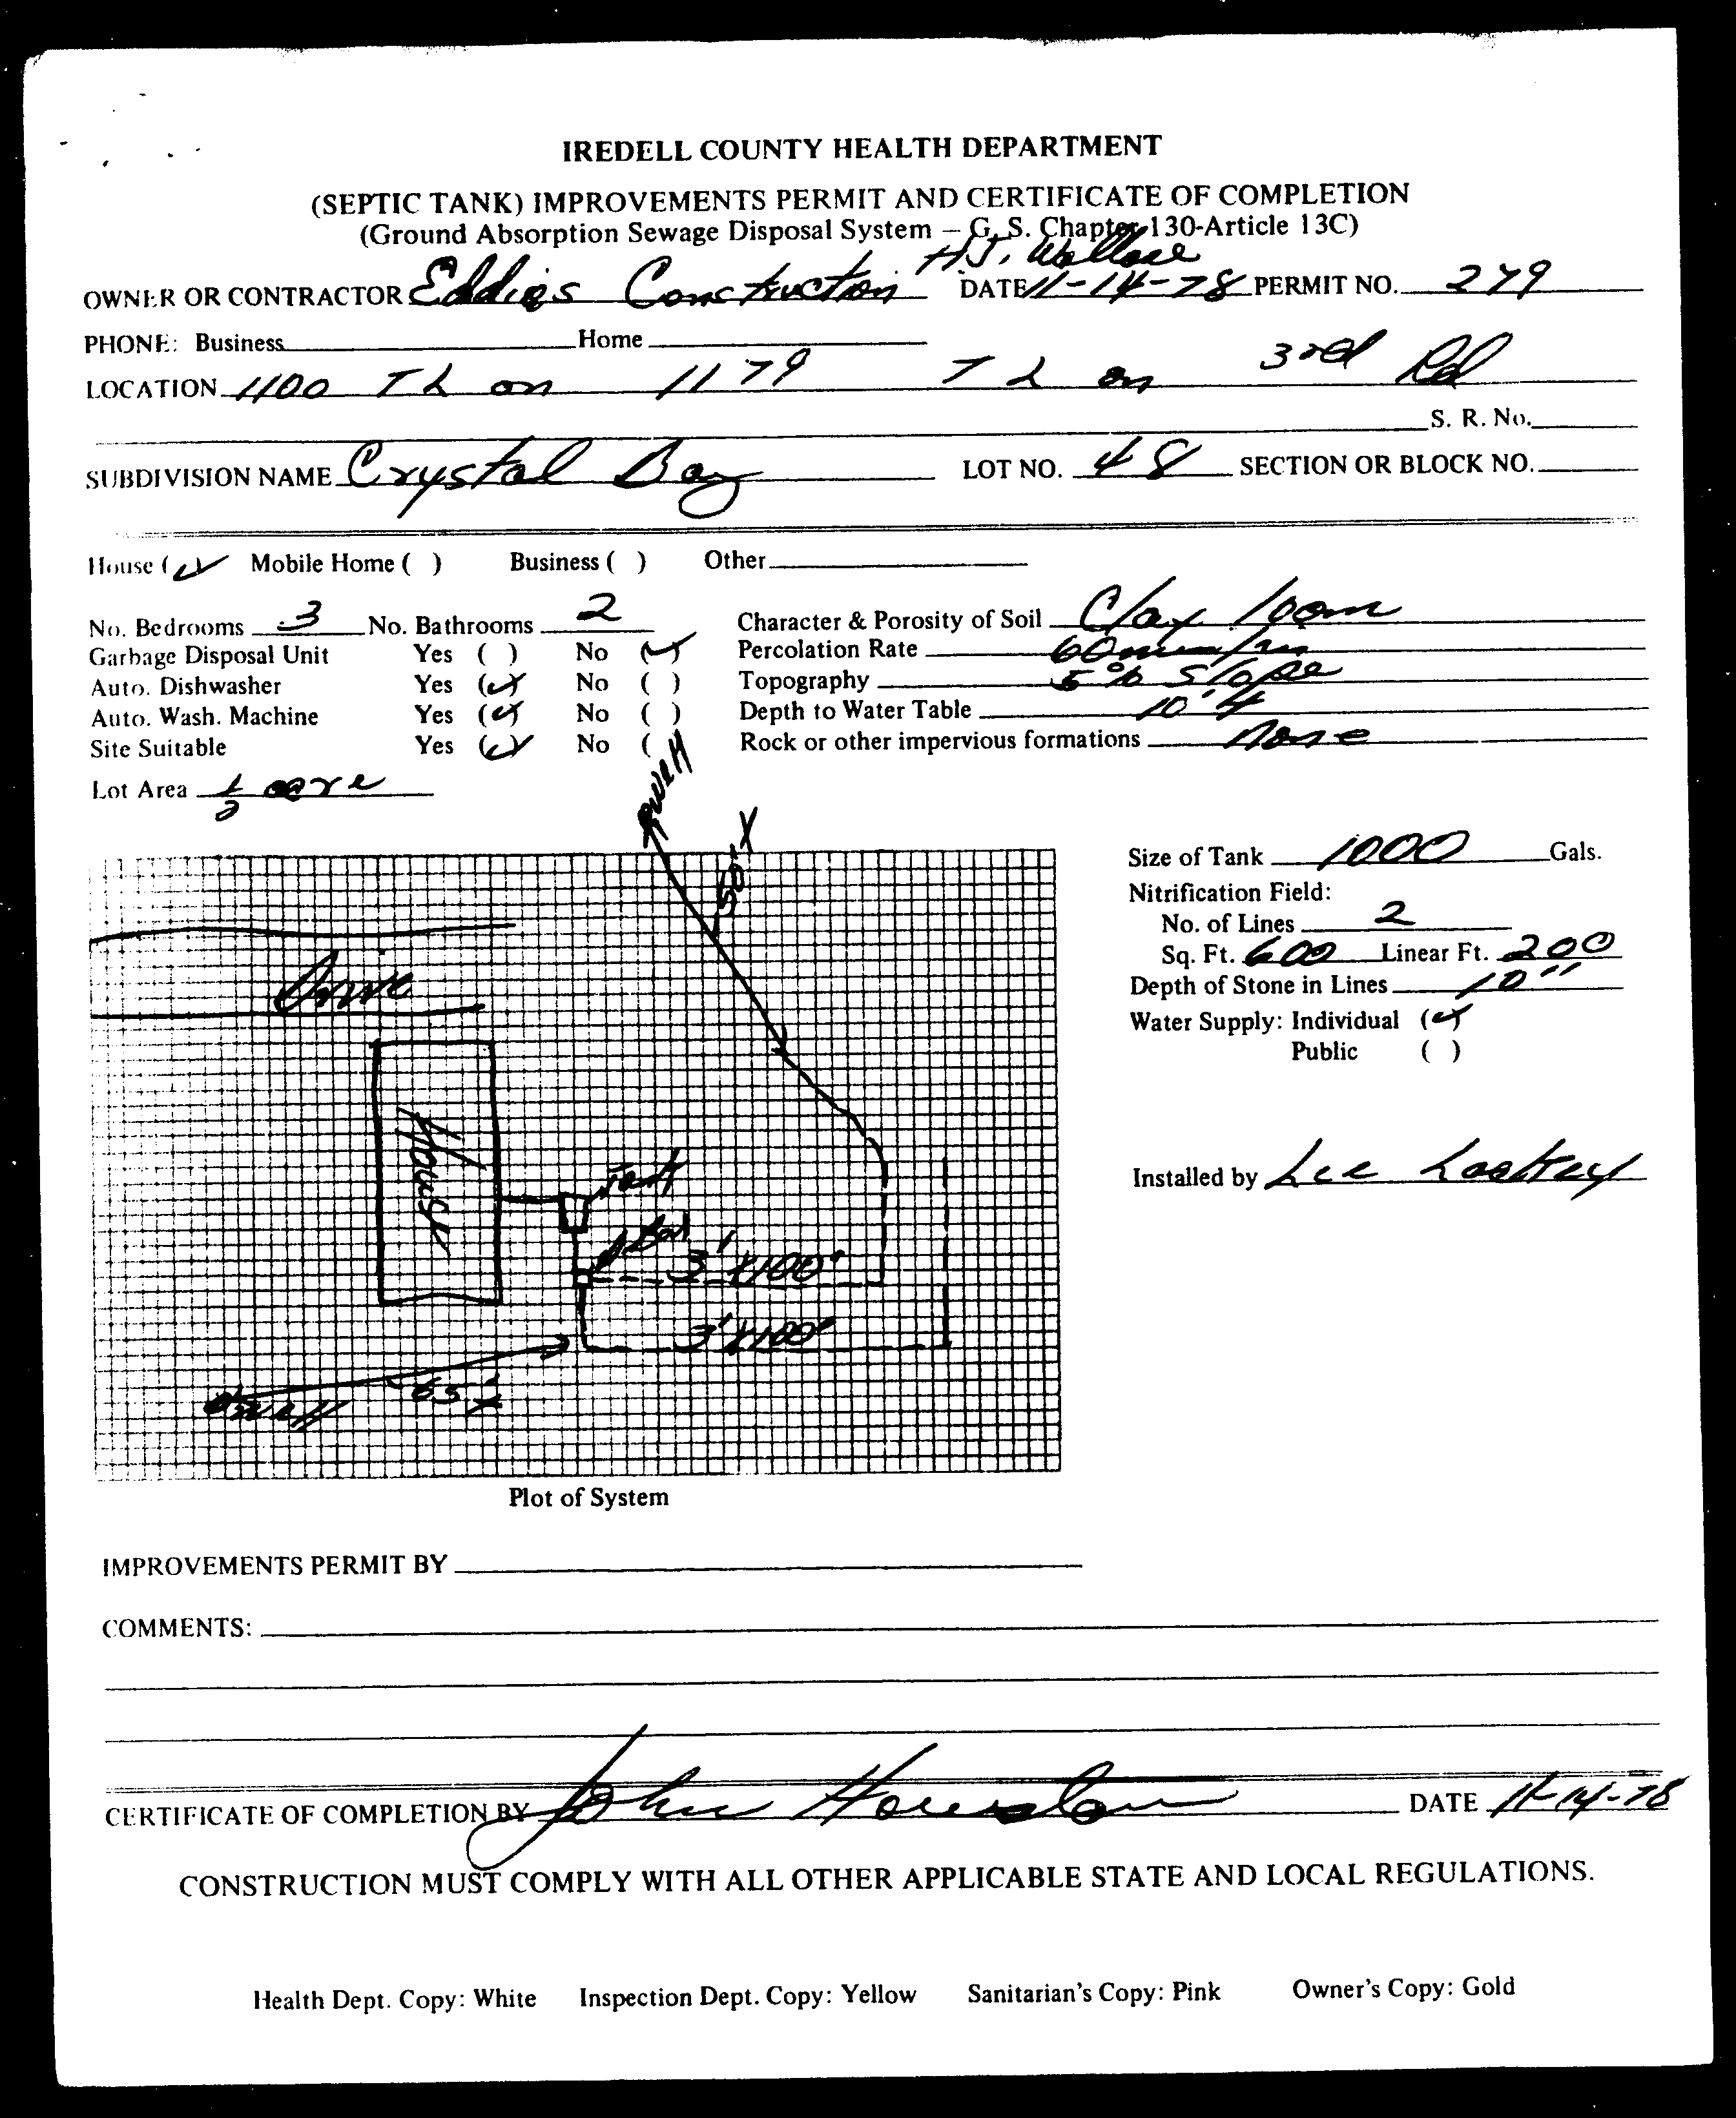 IREDELL COUNTY HEALTH DEPARTMENT
(SEPTIC TANK) IMPROVEMENTS PERMIT AND CERTIFICATE OF COMPLETION
(Ground Absorption Sewage Disposal System – G. S. Chapter 130-Article 13C)
H.J. Wallace
OWNER OR CONTRACTOR Eddies Construction DATE 11-14-78 PERMIT NO. 279
PHONE: Business Home
LOCATION 1100 TL on 1179 TL on 3rd Rd
S. R. No.
SUBDIVISION NAME Crystal Bay LOT NO. 48 SECTION OR BLOCK NO.
House (✓) Mobile Home ( ) Business ( ) Other
No. Bedrooms 3 No. Bathrooms 2 Character & Porosity of Soil Clay loam
Garbage Disposal Unit Yes ( ) No (✓) Percolation Rate 60 min/in
Auto. Dishwasher Yes (✓) No ( ) Topography 5% slope
Auto. Wash. Machine Yes (✓) No ( ) Depth to Water Table 10'
Site Suitable Yes (✓) No ( ) Rock or other impervious formations None
Lot Area ½ acre
well
50'
Size of Tank 1000 Gals.
Nitrification Field:
No. of Lines 2
Sq. Ft. 600 Linear Ft. 200
Depth of Stone in Lines 10"
Water Supply: Individual (✓)
Public ( )
Drive
House
Tank
3'x100'
3'x100'
65'
well
Installed by Lee
Plot of System
IMPROVEMENTS PERMIT BY
COMMENTS:
CERTIFICATE OF COMPLETION BY John Houston DATE 11-14-78
CONSTRUCTION MUST COMPLY WITH ALL OTHER APPLICABLE STATE AND LOCAL REGULATIONS.
Health Dept. Copy: White Inspection Dept. Copy: Yellow Sanitarian's Copy: Pink Owner's Copy: Gold